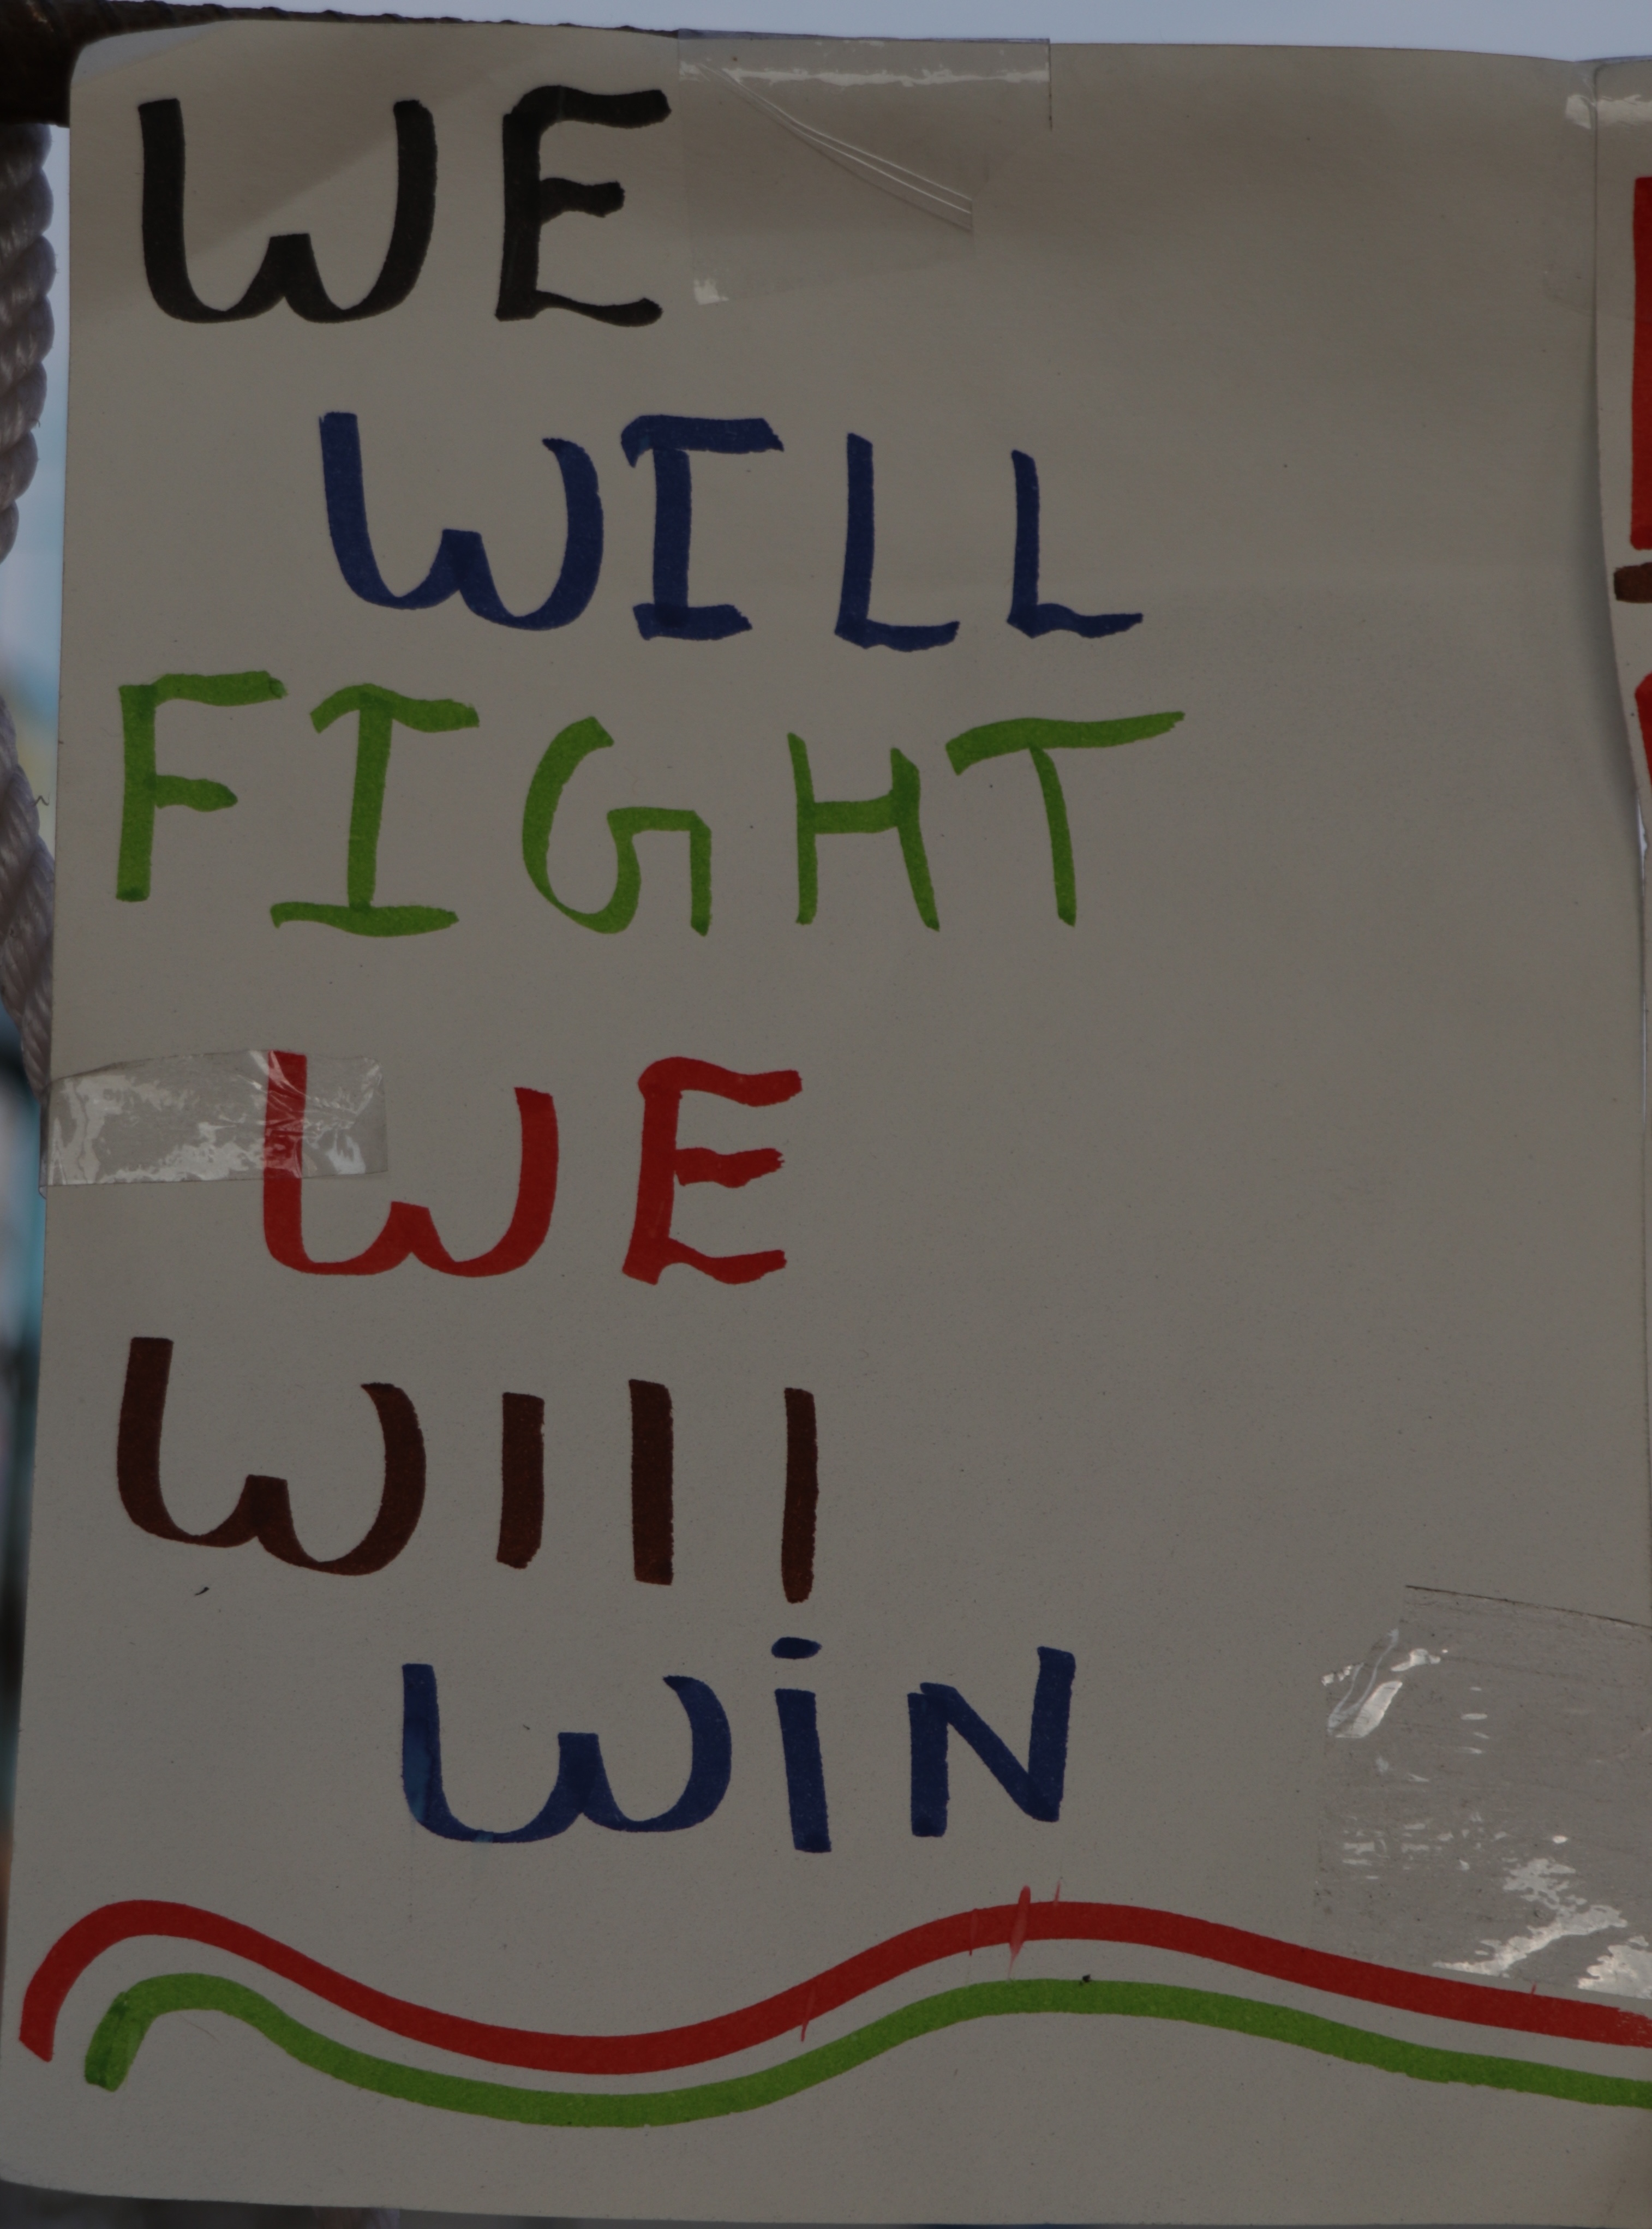 WE
WILL
FIGHT
WE
WIll
WiN